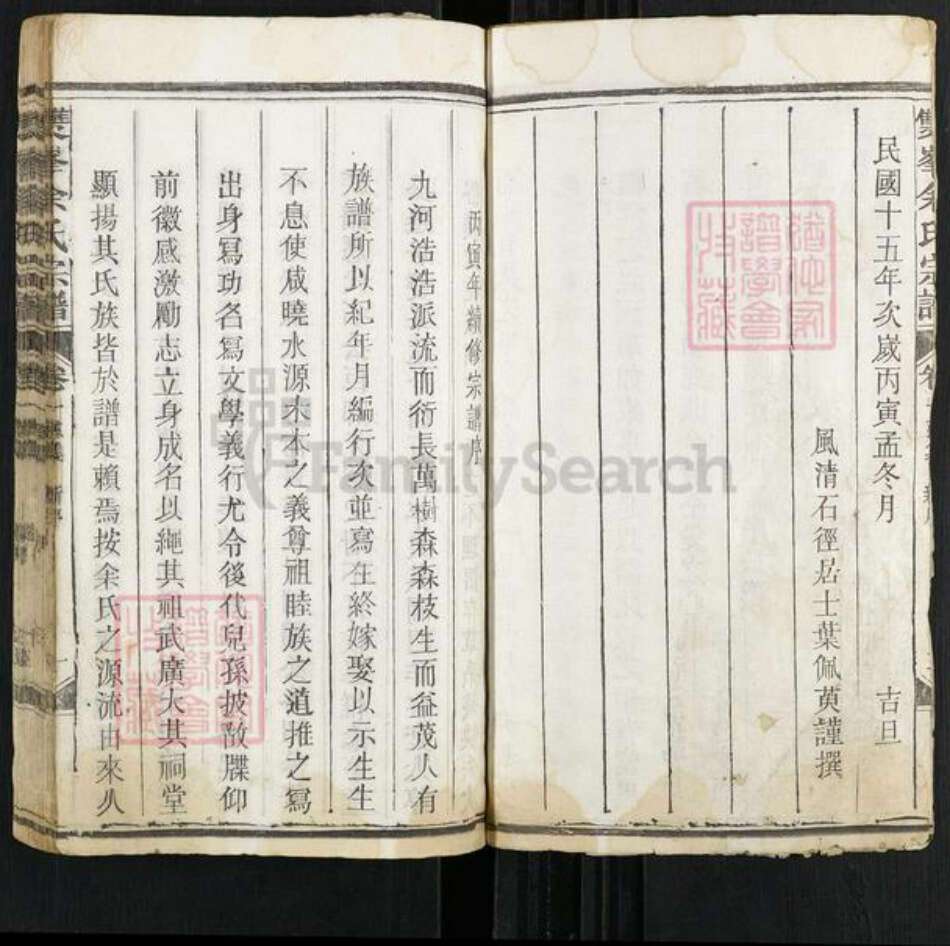 雙峯余氏宗譜
民國十五年次歲丙寅孟冬月 吉旦
風清石徑居士葉佩萸謹撰
丙寅年續修宗譜序
九河浩浩派流而衍長萬樹森森枝生而益茂人有
族譜所以紀年月編行次並寫在終嫁娶以示生生
不息使咸曉水源木本之義尊祖睦族之道推之寫
出身寫功名寫文學義行尤令後代兒孫披敔牒仰
前徽感激勵志立身成名以繩其祖武廣大其祠堂
顯揚其氏族皆於譜是賴焉按余氏之源流由來久
雙峯余氏宗譜 卷一
譜學會
FamilySearch